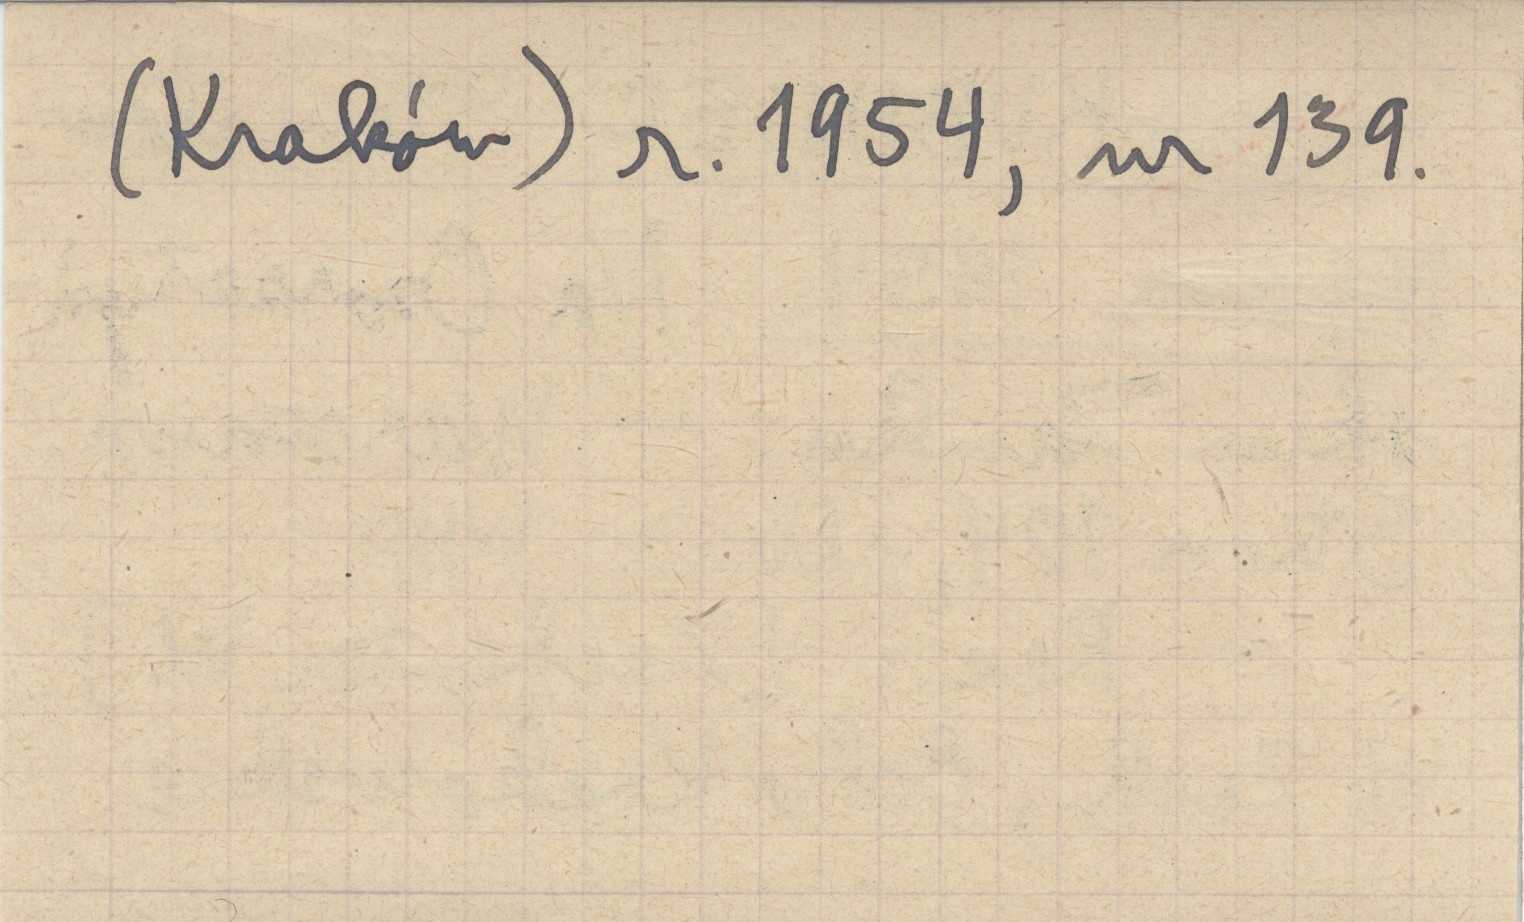 (Kraków) r. 1954, nr 139.